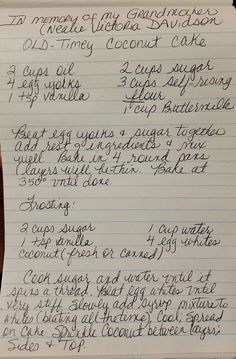 In memory of my Grandmother
(Neatie Victoria Davidson
Old-Timey Coconut Cake
2 cups oil 2 cups sugar
4 egg yolks 3 cups self-rising
1 tsp vanilla flour
1 cup Buttermilk
Beat egg yolks & sugar together
add rest of ingredients & mix
well. Bake in 4 round pans
(layers will be thin. Bake at
350° until done.
Frosting:
2 cups sugar 1 cup water
1 tsp vanilla 4 egg whites
coconut (fresh or canned)
Cook sugar and water until it
spins a thread. Beat egg whites until
very stiff. Slowly add syrup mixture to
whites (beating all the time) Cool, Spread
on cake. Sprinkle Coconut between layers,
Sides & Top.